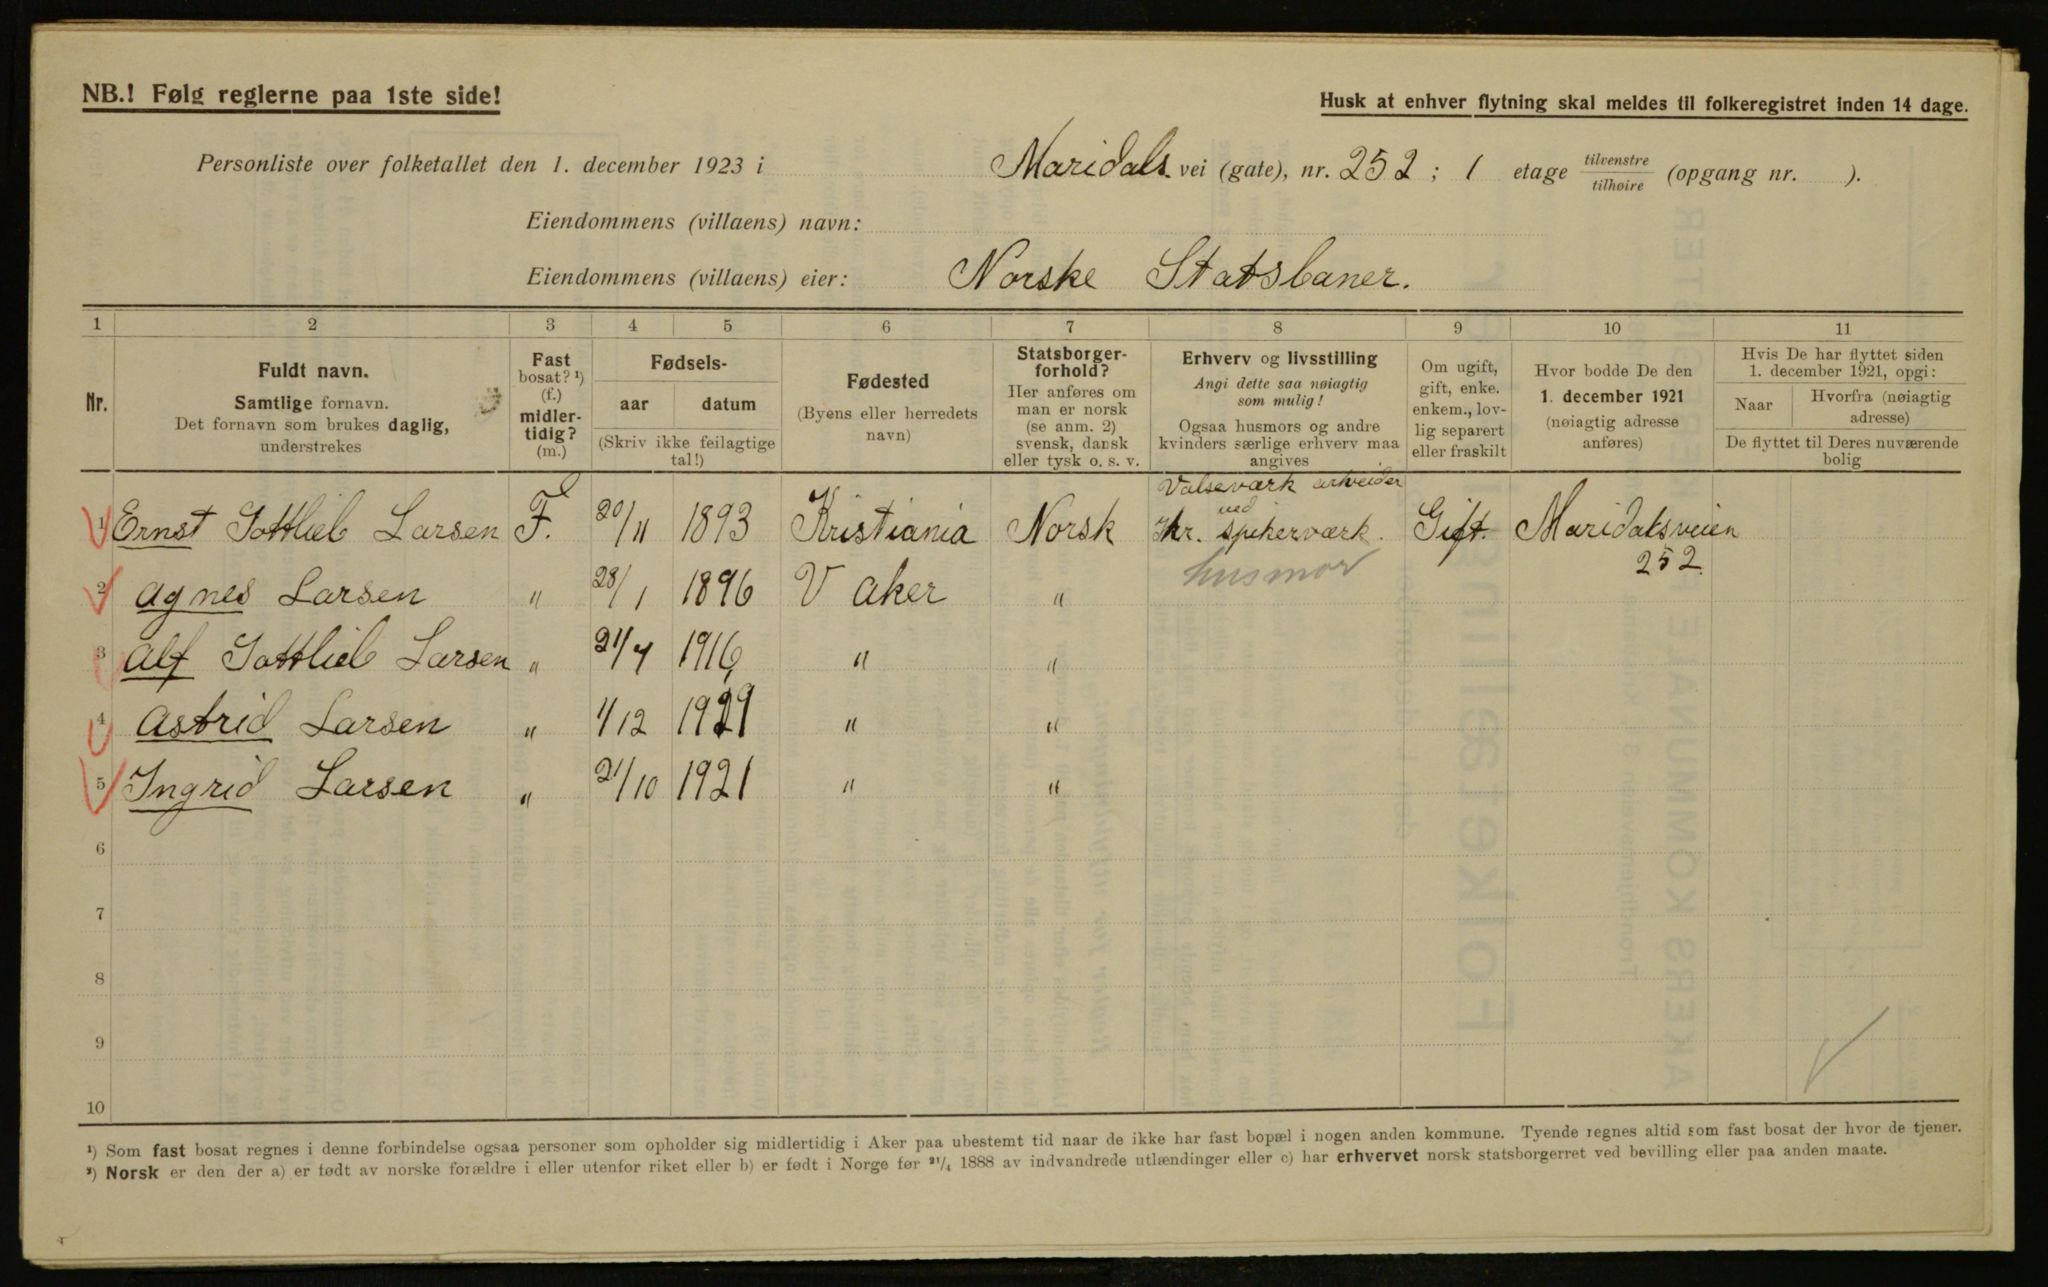 NB.! Følg reglerne paa 1ste side!
Husk at enhver flytning skal meldes til folkeregistret inden 14 dage.
Personliste over folketallet den 1. december 1923 i Maridals vei (gate), nr. 252 ; 1 etage tilvenstre/tilhøire (opgang nr. ).
Eiendommens (villaens) navn:
Eiendommens (villaens) eier: Norske Statsbaner.
1 2 3 4 5 6 7 8 9 10 11
Nr.
Fuldt navn.
Samtlige fornavn.
Det fornavn som brukes daglig,
understrekes
Fast
bosat? ¹)
(f.)
midler-
tidig?
(m.)
Fødsels-
aar datum
(Skriv ikke feilagtige
tal!)
Fødested
(Byens eller herredets
navn)
Statsborger-
forhold?
Her anføres om
man er norsk
(se anm. 2)
svensk, dansk
eller tysk o. s. v.
Erhverv og livsstilling
Angi dette saa nøiagtig
som mulig!
Ogsaa husmors og andre
kvinders særlige erhverv maa
angives
Om ugift,
gift, enke.
enkem., lov-
lig separert
eller fraskilt
Hvor bodde De den
1. december 1921
(nøiagtig adresse
anføres)
Hvis De har flyttet siden
1. december 1921, opgi:
Naar
Hvorfra (nøiagtig
adresse)
De flyttet til Deres nuværende
bolig
Valseværk arbeider
ved
1 Ernst Gottlieb Larsen F. 20/11 1893 Kristiania Norsk Kr. spikerværk. Gift. Maridalsveien
252
2 Agnes Larsen " 28/1 1896 V Aker " husmor
3 Alf Gottlieb Larsen " 21/4 1916 " "
4 Astrid Larsen " 1/12 1919 " "
5 Ingrid Larsen " 21/10 1921 " "
6
7
8
9
10
¹) Som fast bosat regnes i denne forbindelse ogsaa personer som opholder sig midlertidig i Aker paa ubestemt tid naar de ikke har fast bopæl i nogen anden kommune. Tyende regnes altid som fast bosat der hvor de tjener.
²) Norsk er den der a) er født av norske forældre i eller utenfor riket eller b) er født i Norge før ²¹/₄ 1888 av indvandrede utlændinger eller c) har erhvervet norsk statsborgerret ved bevilling eller paa anden maate.